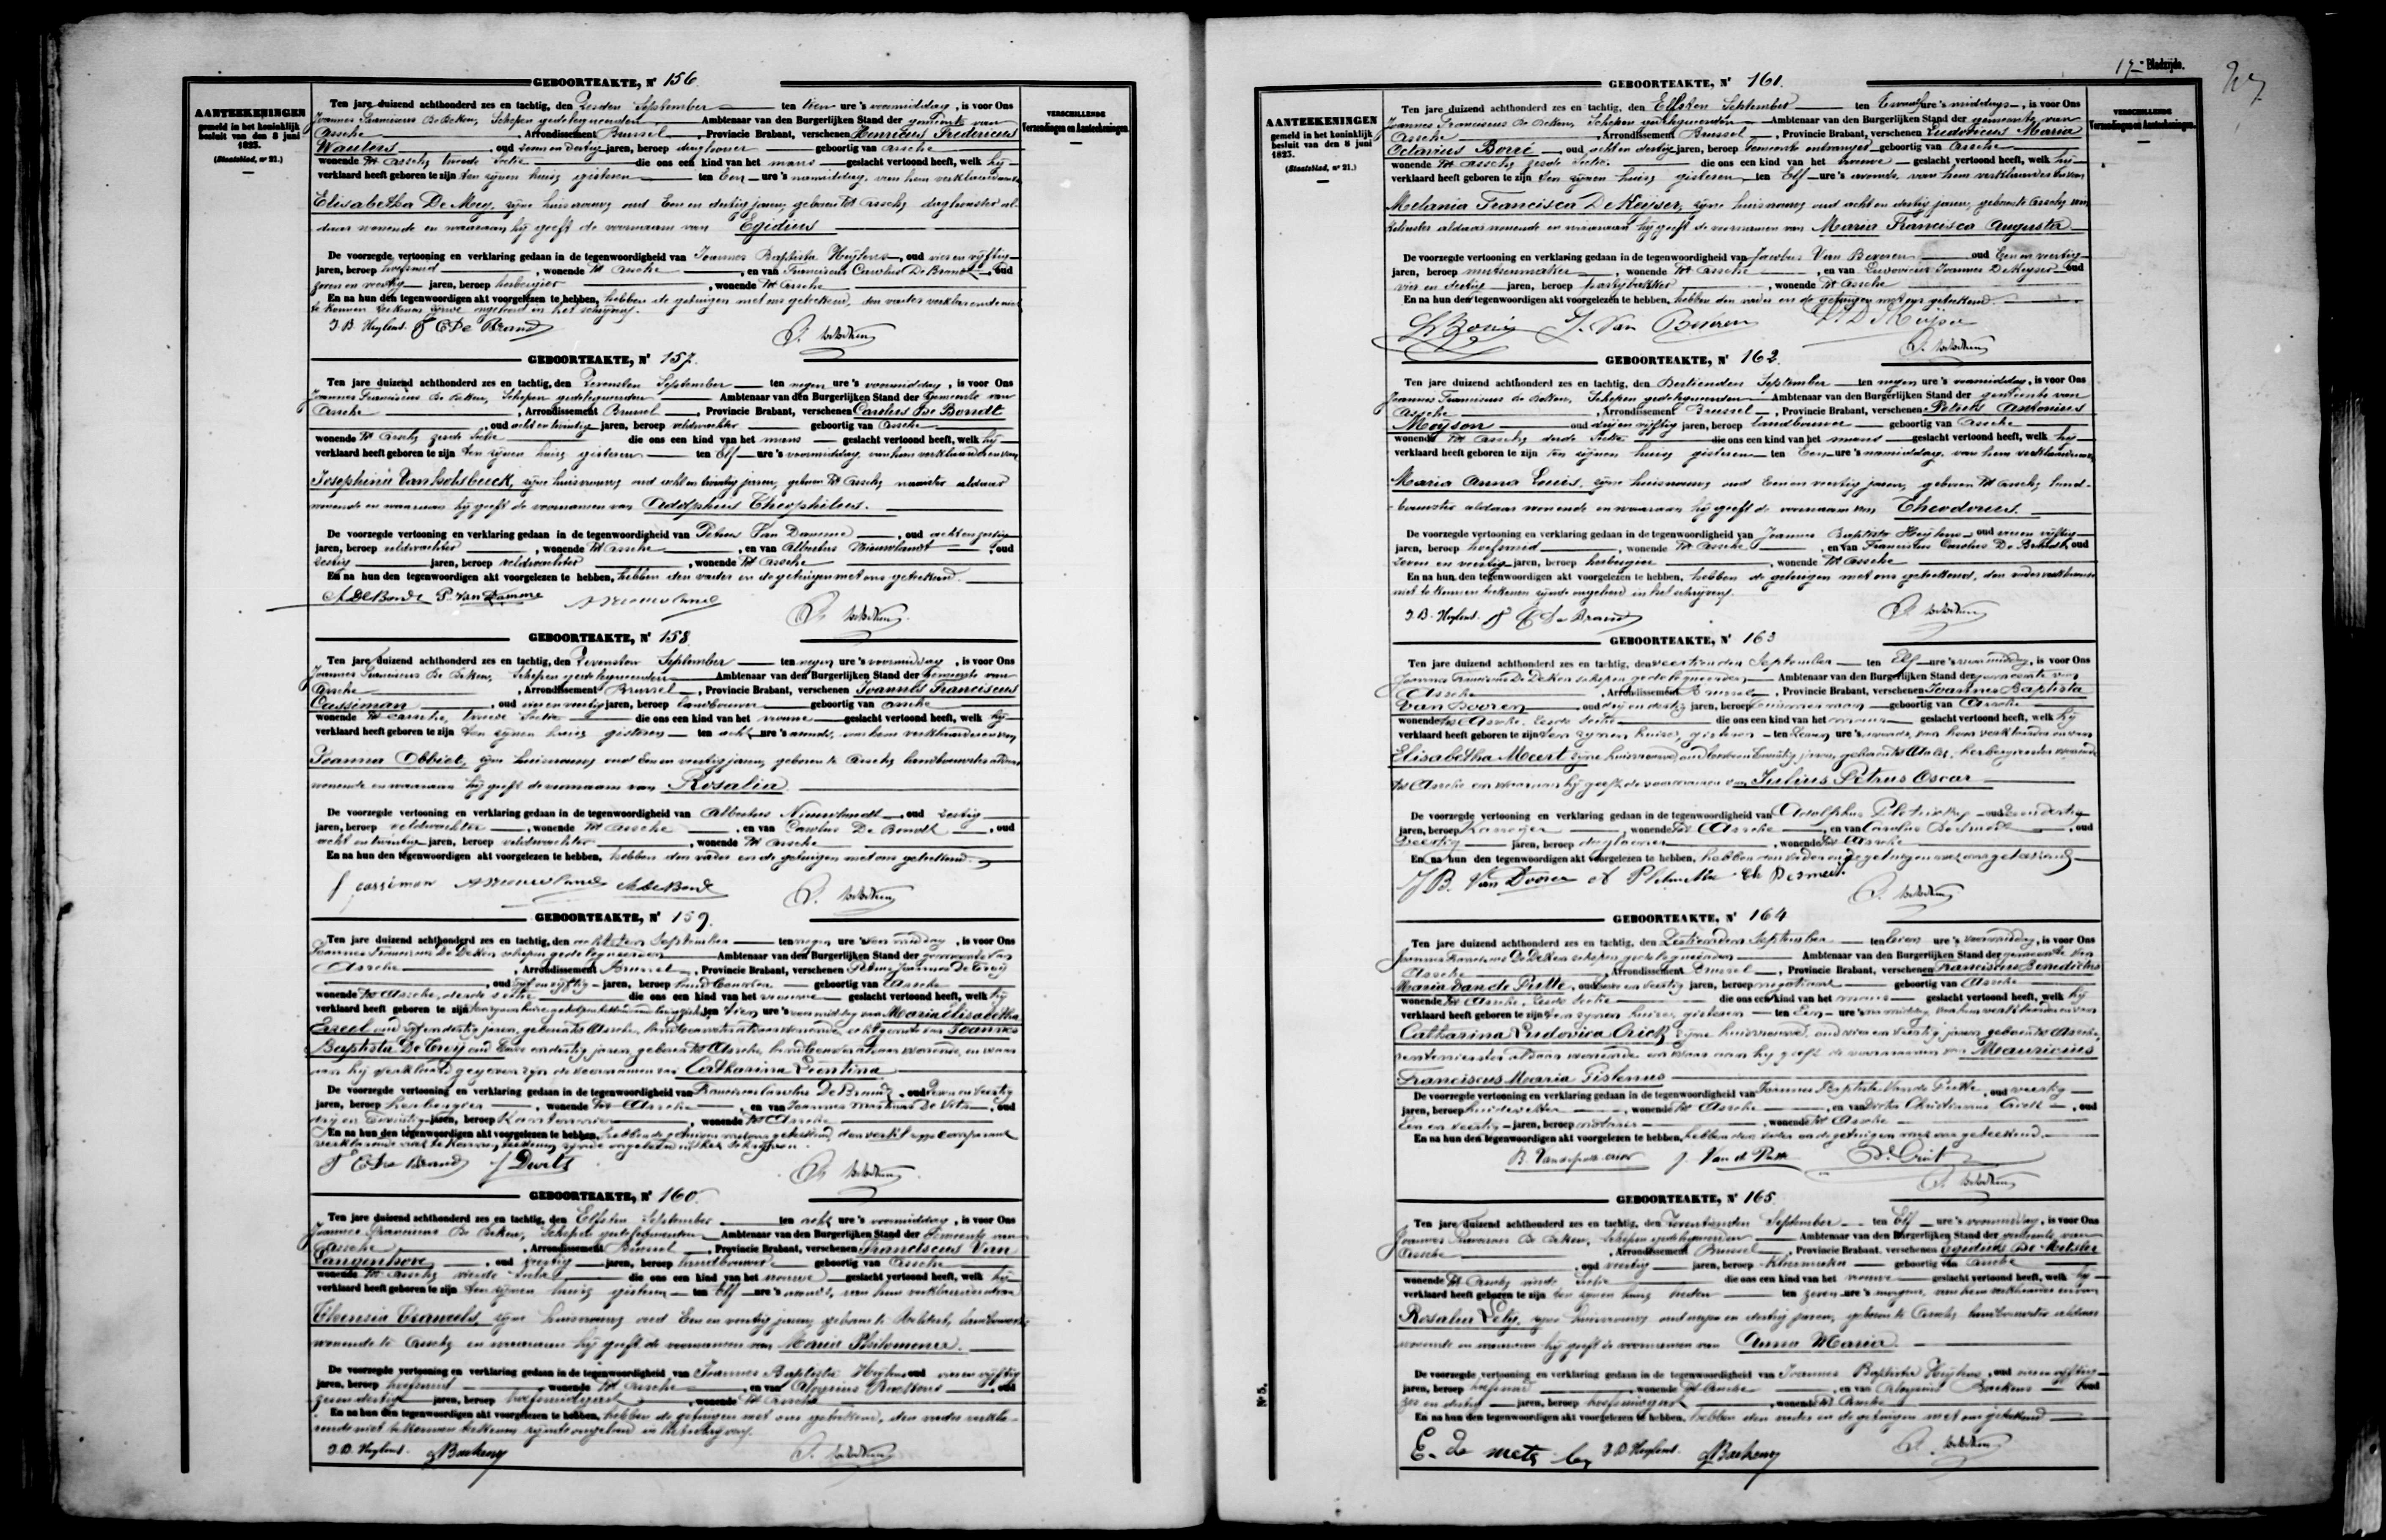 GEBOORTEAKTE, Nr 156
AANTEEKENINGEN
gemeld in het koninklijk
besluit van den 8 juni
1823.
(Staatsblad, nr 21.)
VERSCHILLENDE
Verzendingen en Aanteekeningen.
Ten jare duizend achthonderd zes en tachtig, den Zesden September ten tien ure 's voormiddag, is voor Ons
Joannes Franciscus De Deken, Schepen gedelegueerden Ambtenaar van den Burgerlijken Stand der gemeente van
Assche, Arrondissement Brussel, Provincie Brabant, verschenen Henricus Fredericus
Wauters, oud zeven en dertig jaren, beroep daglooner geboortig van Assche
wonende tot Assche tweede Sectie die ons een kind van het mans geslacht vertoond heeft, welk hij
verklaard heeft geboren te zijn ten zijnen huize gisteren ten Een ure 's namiddag, van hem verklaarder en van
Elisabetha De Mey, zijne huisvrouw, oud Een en dertig jaren, geboren tot Assche, daglooster al-
daar wonende en waaraan hij geeft de voornaam van Egidius
De voorzegde vertooning en verklaring gedaan in de tegenwoordigheid van Joannes Baptista Heylens, oud vier en vijftig
jaren, beroep hoefsmid, wonende tot Assche, en van Franciscus Carolus De Brandt, oud
zeven en veertig jaren, beroep herbergier, wonende tot Assche
En na hun den tegenwoordigen akt voorgelezen te hebben, hebben de getuigen met ons geteekend, den vader verklarende niet
te kunnen teekenen zijnde ongeleerd in het schrijven.
J.B. Heylens F C De Brandt
GEBOORTEAKTE, Nr 157.
Ten jare duizend achthonderd zes en tachtig, den Zevensten September ten negen ure 's voormiddag, is voor Ons
Joannes Franciscus De Deken, Schepen gedelegueerden Ambtenaar van den Burgerlijken Stand der Gemeente van
Assche, Arrondissement Brussel, Provincie Brabant, verschenen Carolus De Bondt
, oud acht en twintig jaren, beroep veldwachter geboortig van Assche
wonende tot Assche zesde Sectie die ons een kind van het mans geslacht vertoond heeft, welk hij
verklaard heeft geboren te zijn ten zijnen huize gisteren ten Elf ure 's voormiddag, van hem verklaarder en van
Josephina Van Holsbeeck, zijne huisvrouw, oud acht en twintig jaren, geboren tot Assche, naaister aldaar
wonende en waaraan hij geeft de voornamen van Adolphus Theophilus.
De voorzegde vertooning en verklaring gedaan in de tegenwoordigheid van Petrus Van Damme, oud acht en zestig
jaren, beroep veldwachter, wonende tot Assche, en van Albertus Nieuwlandt, oud
zestig jaren, beroep veldwachter, wonende tot Assche
En na hun den tegenwoordigen akt voorgelezen te hebben, hebben den vader en de getuigen met ons geteekend.
P. Van Damme
GEBOORTEAKTE, Nr 158.
Ten jare duizend achthonderd zes en tachtig, den Zevensten September ten negen ure 's voormiddag, is voor Ons
Joannes Franciscus De Deken, Schepen gedelegueerden Ambtenaar van den Burgerlijken Stand der Gemeente van
Assche, Arrondissement Brussel, Provincie Brabant, verschenen Joannes Franciscus
Cassiman, oud vier en veertig jaren, beroep landbouwer geboortig van Assche
wonende tot Assche, tweede Sectie die ons een kind van het vrouwe geslacht vertoond heeft, welk hij
verklaard heeft geboren te zijn ten zijnen huize gisteren ten acht ure 's avonds, van hem verklaarder en van
Joanna Obbiet, zijne huisvrouw, oud Een en veertig jaren, geboren te Assche, landbouwster aldaar
wonende en waaraan hij geeft de voornaam van Rosalia.
De voorzegde vertooning en verklaring gedaan in de tegenwoordigheid van Albertus Nieuwlandt, oud zestig
jaren, beroep veldwachter, wonende tot Assche, en van Carolus De Bondt, oud
acht en twintig jaren, beroep veldwachter, wonende tot Assche
En na hun den tegenwoordigen akt voorgelezen te hebben, hebben den vader en de getuigen met ons geteekend.
f cassiman
GEBOORTEAKTE, Nr 159.
Ten jare duizend achthonderd zes en tachtig, den achtsten September ten negen ure 's voormiddag, is voor Ons
Joannes Franciscus De Deken schepen gedelegueerden Ambtenaar van den Burgerlijken Stand der gemeente van
Assche, Arrondissement Brussel, Provincie Brabant, verschenen Petrus Joannes
, oud en vijftig jaren, beroep landbouwer geboortig van Assche
wonende tot Assche, derde sectie die ons een kind van het vrouwe geslacht vertoond heeft, welk hij
verklaard heeft geboren te zijn ten tien ure 's voormiddag van Maria Elisabetha
oud en dertig jaren, geboren tot Assche, landbouwster aldaar wonende, echtgenote van Joannes
Baptista oud en dertig jaren, geboren tot Assche, landbouwer aldaar wonende, en waar-
aan hij verklaard gegeven zijn de voornamen van Catharina Leontina
De voorzegde vertooning en verklaring gedaan in de tegenwoordigheid van Franciscus Carolus De Brandt, oud zeven en veertig
jaren, beroep herbergier, wonende tot Assche, en van Joannes De Vits, oud
drij en twintig jaren, beroep, wonende tot Assche
En na hun den tegenwoordigen akt voorgelezen te hebben, hebben de getuigen met ons geteekend, den comparant
verklarende niet te kunnen teekenen zijnde ongeleerd in het schrijven.
GEBOORTEAKTE, Nr 160.
Ten jare duizend achthonderd zes en tachtig, den Elfsten September ten acht ure 's voormiddag, is voor Ons
Joannes Franciscus De Deken, Schepen gedelegueerden Ambtenaar van den Burgerlijken Stand der Gemeente van
Assche, Arrondissement Brussel, Provincie Brabant, verschenen Franciscus Van
Langenhove, oud veertig jaren, beroep landbouwer geboortig van Assche
wonende tot Assche vierde Sectie die ons een kind van het vrouwe geslacht vertoond heeft, welk hij
verklaard heeft geboren te zijn ten zijnen huize gisteren ten Elf ure 's avonds, van hem verklaarder en van
zijne huisvrouw, oud Een en veertig jaren, geboren te landbouwster
wonende te Assche en waaraan hij geeft de voornamen van Maria Philomena.
De voorzegde vertooning en verklaring gedaan in de tegenwoordigheid van Joannes Baptista Heylens oud vier en vijftig
jaren, beroep hoefsmid, wonende tot Assche, en van Aloysius Baeckens, oud
zes en dertig jaren, beroep hoefsmidgast, wonende tot Assche
En na hun den tegenwoordigen akt voorgelezen te hebben, hebben de getuigen met ons geteekend, den vader verkla-
rende niet te kunnen teekenen zijnde ongeleerd in het schrijven.
J.B. Heylens.
17e Bladzijde.
GEBOORTEAKTE, Nr 161.
AANTEEKENINGEN
gemeld in het koninklijk
besluit van den 8 juni
1823.
(Staatsblad, nr 21.)
VERSCHILLENDE
Verzendingen en Aanteekeningen.
Ten jare duizend achthonderd zes en tachtig, den Elfsten September ten Twaalf ure 's middags, is voor Ons
Joannes Franciscus De Deken, Schepen gedelegueerden Ambtenaar van den Burgerlijken Stand der gemeente van
Assche, Arrondissement Brussel, Provincie Brabant, verschenen Ludovicus Maria
Octavius Borré, oud acht en dertig jaren, beroep Gemeente ontvanger geboortig van Assche
wonende tot Assche zesde Sectie die ons een kind van het vrouwe geslacht vertoond heeft, welk hij
verklaard heeft geboren te zijn ten zijnen huize gisteren ten Elf ure 's avonds, van hem verklaarder en van
Melania Francisca De Keyser, zijne huisvrouw, oud acht en dertig jaren, geboren te Assche, win-
kelierster aldaar wonende en waaraan hij geeft de voornamen van Maria Francisca Augusta
De voorzegde vertooning en verklaring gedaan in de tegenwoordigheid van Jacobus Van Beveren oud Een en veertig
jaren, beroep mutsenmaker, wonende tot Assche, en van Ludovicus Joannes De Keyser oud
vier en dertig jaren, beroep pasteybakker, wonende tot Assche
En na hun den tegenwoordigen akt voorgelezen te hebben, hebben den vader en de getuigen met ons geteekend.
J. Van Beveren
GEBOORTEAKTE, Nr 162.
Ten jare duizend achthonderd zes en tachtig, den Dertienden September ten negen ure 's voormiddag, is voor Ons
Joannes Franciscus De Deken, Schepen gedelegueerden Ambtenaar van den Burgerlijken Stand der gemeente van
Assche, Arrondissement Brussel, Provincie Brabant, verschenen Petrus Antonius
Moyson oud drij en vijftig jaren, beroep landbouwer geboortig van Assche
wonende tot Assche derde Sectie die ons een kind van het mans geslacht vertoond heeft, welk hij
verklaard heeft geboren te zijn ten zijnen huize gisteren ten Een ure 's namiddag, van hem verklaarder en van
Maria Anna Louis, zijne huisvrouw, oud Een en veertig jaren, geboren tot Assche, land-
bouwster aldaar wonende en waaraan hij geeft de voornaam van Theodorus.
De voorzegde vertooning en verklaring gedaan in de tegenwoordigheid van Joannes Baptista Heylens oud vier en vijftig
jaren, beroep hoefsmid, wonende tot Assche, en van Franciscus Carolus De Brandt, oud
zeven en veertig jaren, beroep herbergier, wonende tot Assche
En na hun den tegenwoordigen akt voorgelezen te hebben, hebben de getuigen met ons geteekend, den vader verklarende
niet te kunnen teekenen zijnde ongeleerd in het schrijven.
J.B. Heylens F C De Brandt
GEBOORTEAKTE, Nr 163
Ten jare duizend achthonderd zes en tachtig, den veertienden September ten Elf ure 's voormiddag, is voor Ons
Joannes Franciscus De Deken schepen gedelegueerden Ambtenaar van den Burgerlijken Stand der gemeente van
Assche, Arrondissement Brussel, Provincie Brabant, verschenen Joannes Baptista
Van Dooren oud drij en dertig jaren, beroep geboortig van Assche
wonende tot Assche, zesde sectie die ons een kind van het mans geslacht vertoond heeft, welk hij
verklaard heeft geboren te zijn ten zijnen huize, gisteren ten zeven ure 's avonds, van hem verklaarder en van
Elisabetha Meert zijne huisvrouw, oud en twintig jaren, geboren tot, herbergierster wonende
tot Assche en waaraan hij geeft de voornamen van Julius Petrus Oscar
De voorzegde vertooning en verklaring gedaan in de tegenwoordigheid van Adolphus, oud en dertig
jaren, beroep, wonende tot Assche, en van Carolus De Smedt, oud
veertig jaren, beroep daglooner, wonende tot Assche
En na hun den tegenwoordigen akt voorgelezen te hebben, hebben den vader en de getuigen met ons geteekend
J B. Van Dooren
GEBOORTEAKTE, Nr 164
Ten jare duizend achthonderd zes en tachtig, den Zestienden September ten zeven ure 's voormiddag, is voor Ons
Joannes Franciscus De Deken schepen gedelegueerden Ambtenaar van den Burgerlijken Stand der gemeente van
Assche, Arrondissement Brussel, Provincie Brabant, verschenen Franciscus Benedictus
Maria Van de Putte, oud en veertig jaren, beroep negotiant geboortig van Assche
wonende tot Assche, zesde sectie die ons een kind van het mans geslacht vertoond heeft, welk hij
verklaard heeft geboren te zijn ten zijnen huize, gisteren ten Een ure 's namiddag van hem verklaarder en van
Catharina Ludovica Crick, zijne huisvrouw, oud vier en veertig jaren, geboren tot Assche,
rentenierster aldaar wonende en waar aan hij geeft de voornamen van Mauricius
Franciscus Maria
De voorzegde vertooning en verklaring gedaan in de tegenwoordigheid van Joannes Baptista Van de Putte, oud veertig
jaren, beroep huidevetter, wonende tot Assche, en van Christianus Crick, oud
Een en veertig jaren, beroep notaris, wonende tot Assche
En na hun den tegenwoordigen akt voorgelezen te hebben, hebben den vader en de getuigen met ons geteekend.
J. Van de Putte
GEBOORTEAKTE, Nr 165
Ten jare duizend achthonderd zes en tachtig, den Zeventienden September ten Elf ure 's voormiddag, is voor Ons
Joannes Franciscus De Deken, Schepen gedelegueerden Ambtenaar van den Burgerlijken Stand der gemeente van
Assche, Arrondissement Brussel, Provincie Brabant, verschenen Egidius De Metsler
, oud veertig jaren, beroep kleermaker geboortig van Assche
wonende tot Assche vierde Sectie die ons een kind van het vrouwe geslacht vertoond heeft, welk hij
verklaard heeft geboren te zijn ten zijnen huize heden ten zeven ure 's morgens, van hem verklaarder en van
Rosalia zijne huisvrouw, oud negen en dertig jaren, geboren te Assche, landbouwster aldaar
wonende en waaraan hij geeft de voornamen van Anna Maria.
De voorzegde vertooning en verklaring gedaan in de tegenwoordigheid van Joannes Baptista Heylens, oud vier en vijftig
jaren, beroep hoefsmid, wonende tot Assche, en van Aloysius Baeckens oud
zes en dertig jaren, beroep hoefsmidgast, wonende tot Assche
En na hun den tegenwoordigen akt voorgelezen te hebben, hebben den vader en de getuigen met ons geteekend
E. de mets ler J.B. Heylens.
No 5.